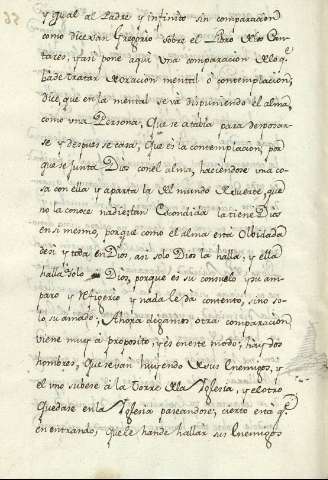 y igual al Padre y infinito sin comparacion
como dice san Gregorio sobre el Libro de los Can-
tares, y asi pone aqui una comparacion de lo q̃
ha de tratar de oracion mental ò contemplacion,
dice, que en la mental se và disponiendo el alma,
como una Persona, que se atabia para desposar-
se y despues se casa, que es la contemplacion, por
que se junta Dios con el alma, haciendose una co-
sa con ella y aparta la del mundo de suerte, que
no la conoce nadie; tan escondida la tiene Dios
en si mesmo, porque como el alma està olbidada
de si y toda en Dios, asi solo Dios la halla, y ella
halla solo a Dios, porque es su consuelo y su am-
paro y refigerio y nada le dà contento, sino so-
lo su amado. Ahora digamos otra comparacion
viene muy à proposito, y es en este modo; hay dos
hombres, que se van huyendo de sus enemigos, y
el uno subese à la Torre de la Iglesia, y el otro
quedase en la Iglesia paseandose; cierto està q̃
en entrando, que le han de hallar sus enemigos